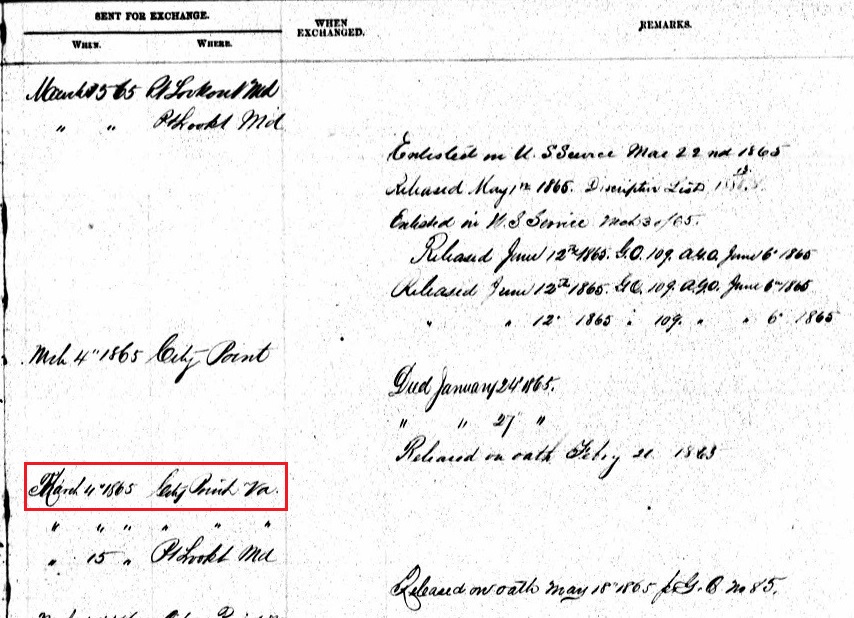 SENT FOR EXCHANGE.
WHEN EXCHANGED.
REMARKS.
WHEN. WHERE.
March 15 65 Pt Lookout Md
" " Pt Lookt Md
Enlisted in U. S Service Mar 22nd 1865
Released May 1st 1865. Descriptive List
Enlisted in U. S Service Mch 31/65.
Released June 12th 1865. G.O. 109. A.G.O. June 6" 1865
Released June 12th 1865. G.O. 109. A.G.O. June 6th 1865
" " 12" 1865 " 109. " " 6" 1865
Mch 4" 1865 City Point
Died January 24" 1865.
" " 27" "
Released on oath Feby 21 1865
March 4" 1865 City Point Va.
" " " " " "
" 15 " Pt Lookt Md
Released on oath May 18" 1865 pr G. O. No 85.